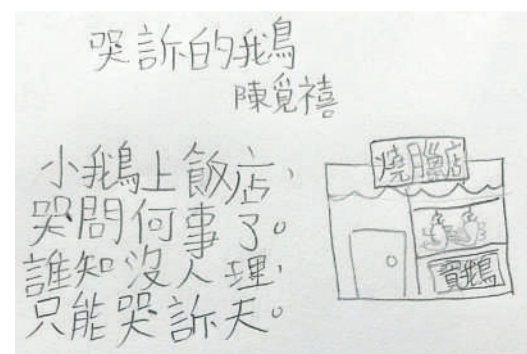 哭訴的鵝
陳覓禧
小鵝上飯店，
哭問何事了。
誰知沒人理，
只能哭訴天。
燒臘店
賣鵝